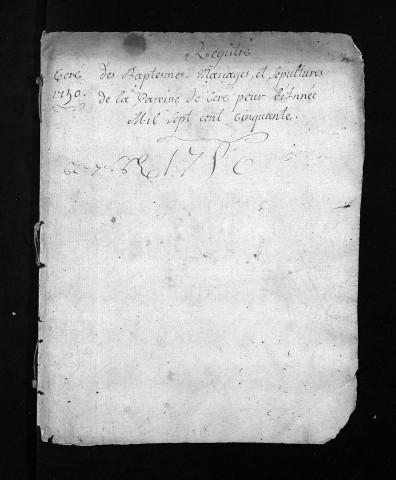 Registre
Ceré des Baptesmes, Mariages, et sepultures
1750. de la Paroisse de Ceré pour L'Année
Mil sept cent Cinquante.